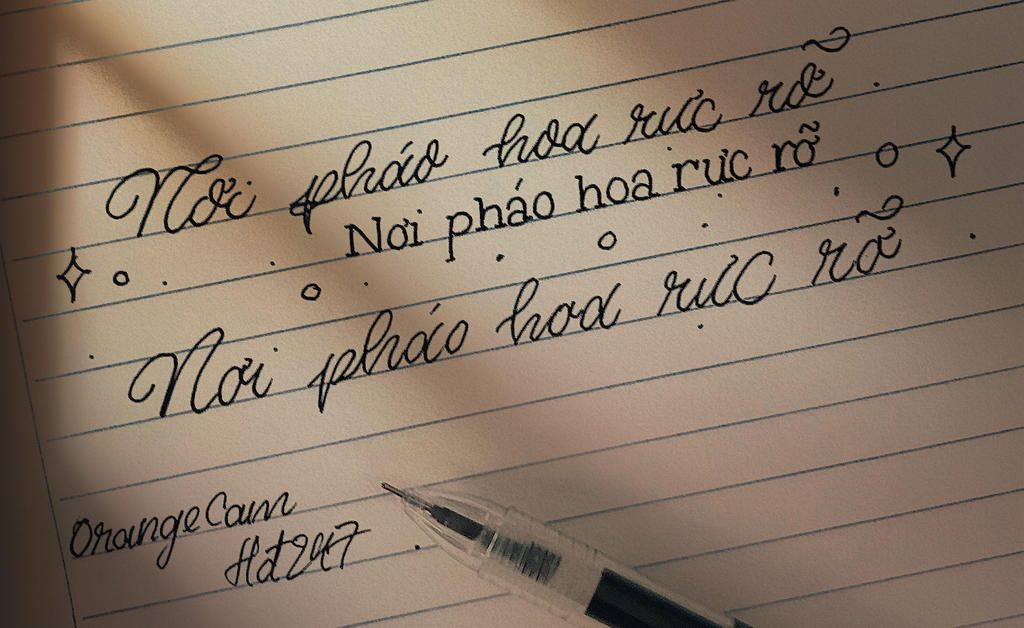 Nơi pháo hoa rực rỡ
Nơi pháo hoa rực rỡ
Nơi pháo hoa rực rỡ
Orange Cam
Hot247